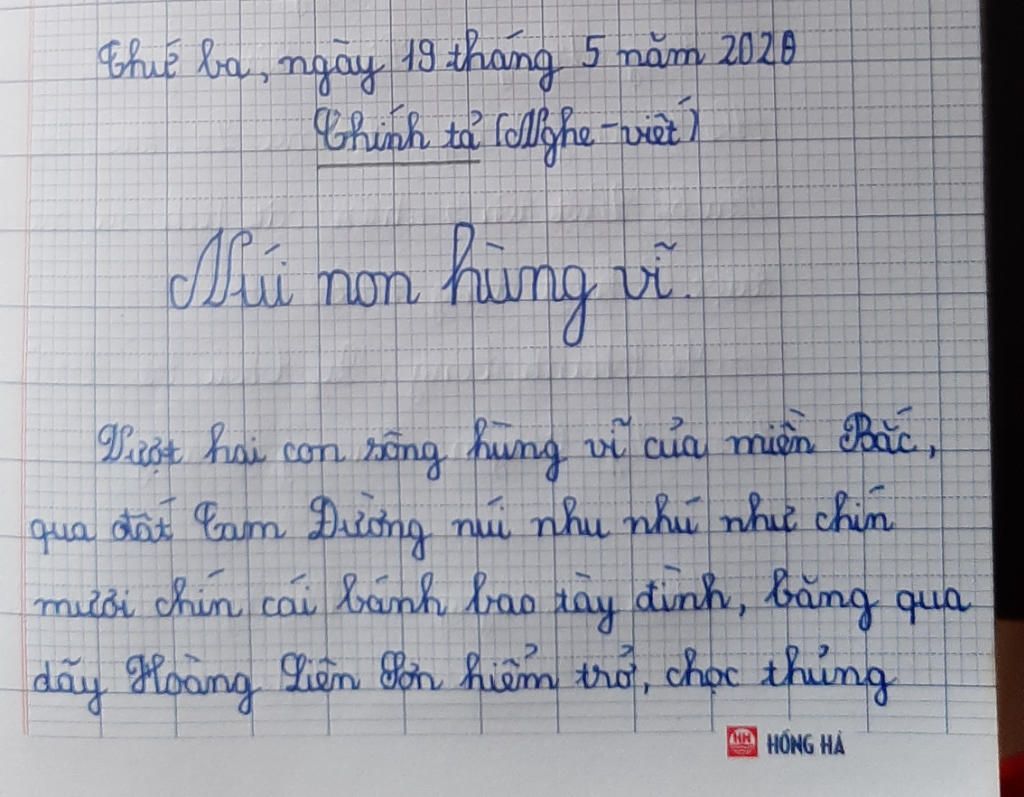 Thứ ba, ngày 19 tháng 5 năm 2020
Chính tả (Nghe-viết)
Núi non hùng vĩ.
Vượt hai con sông hùng vĩ của miền Bắc,
qua đất Tam Đường núi nhu nhú như chín
mươi chín cái bánh bao tày đình, băng qua
dãy Hoàng Liên Sơn hiểm trở, chọc thủng
HỒNG HÀ